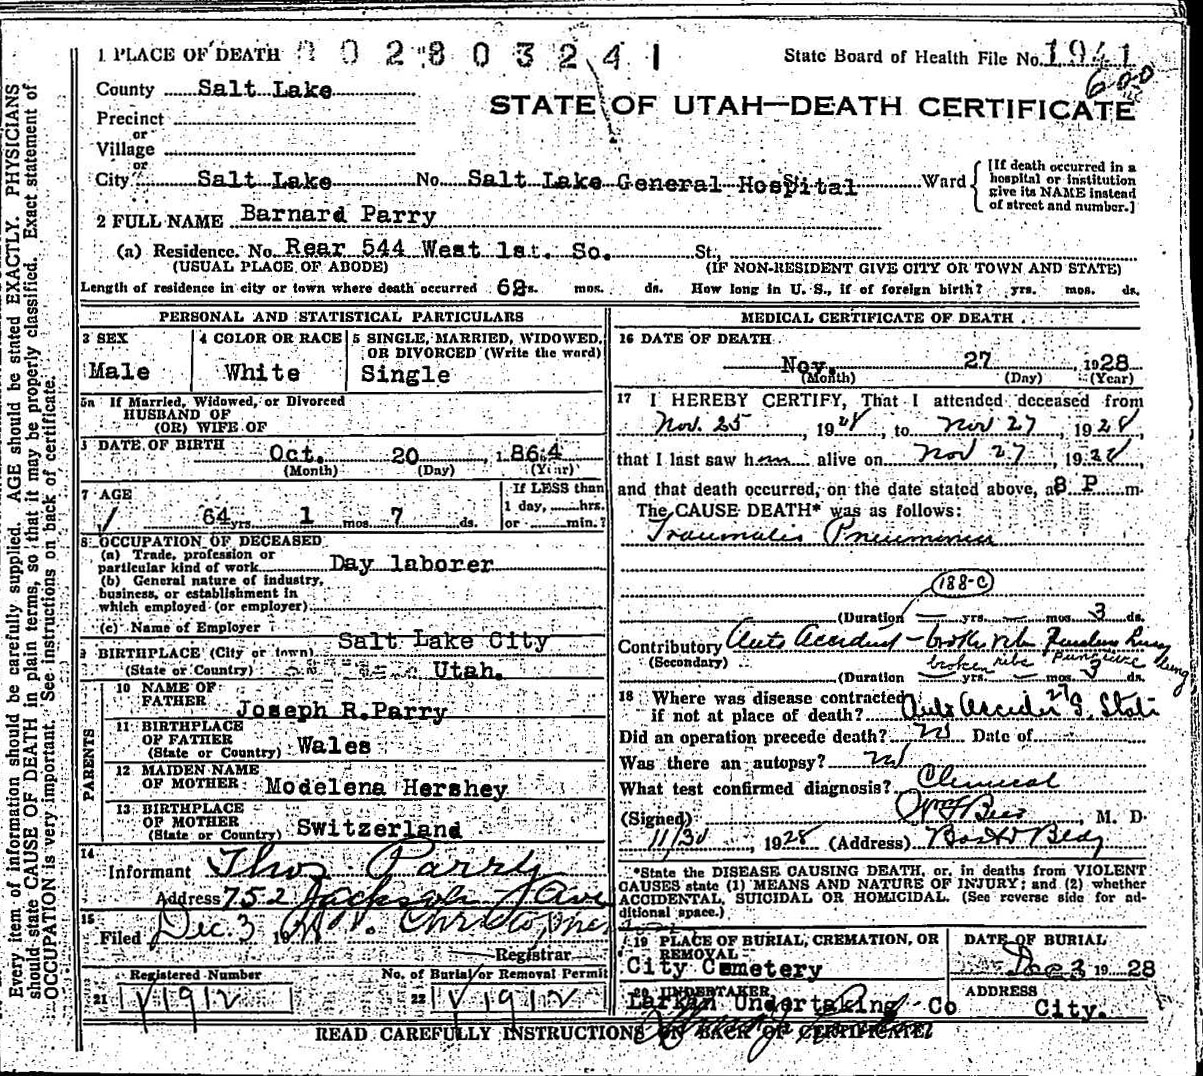 1 PLACE OF DEATH 0 0 2 8 0 3 2 4 1 State Board of Health File No. 1941
600
County Salt Lake
STATE OF UTAH—DEATH CERTIFICATE
Precinct
or
Village
or
City Salt Lake No. Salt Lake General Hospital St. Ward
[If death occurred in a hospital or institution give its NAME instead of street and number.]
2 FULL NAME Barnard Parry
(a) Residence. No. Rear 544 West 1st. So. St.,
(USUAL PLACE OF ABODE) (IF NON-RESIDENT GIVE CITY OR TOWN AND STATE)
Length of residence in city or town where death occurred 62s. mos. ds. How long in U. S., if of foreign birth? yrs. mos. ds.
PERSONAL AND STATISTICAL PARTICULARS
3 SEX
Male
4 COLOR OR RACE
White
5 SINGLE, MARRIED, WIDOWED,
OR DIVORCED (Write the word)
Single
5a If Married, Widowed, or Divorced
HUSBAND OF
(OR) WIFE OF
DATE OF BIRTH Oct. 20 1864
(Month) (Day) (Year)
7 AGE
64 yrs 1 mos 7 ds.
If LESS than
1 day, hrs.
or min.?
8 OCCUPATION OF DECEASED
(a) Trade, profession or
particular kind of work Day laborer
(b) General nature of industry,
business, or establishment in
which employed (or employer)
(c) Name of Employer
9 BIRTHPLACE (City or town) Salt Lake City
(State or Country) Utah.
PARENTS
10 NAME OF
FATHER Joseph R.Parry
11 BIRTHPLACE
OF FATHER
(State or Country) Wales
12 MAIDEN NAME
OF MOTHER Modelena Hershey
13 BIRTHPLACE
OF MOTHER
(State or Country) Switzerland
14
Informant Thos Parry
Address 752 Jackson Ave
15
Filed Dec. 3 19 Christopherson
Registrar
Registered Number
21 1912
No. of Burial or Removal Permit
22 1912
MEDICAL CERTIFICATE OF DEATH
16 DATE OF DEATH
Nov. 27 1928
(Month) (Day) (Year)
17 I HEREBY CERTIFY, That I attended deceased from
Nov. 25, 1928, to Nov 27, 1928,
that I last saw him alive on Nov 27, 1928,
and that death occurred, on the date stated above, at 8 P m.
The CAUSE DEATH* was as follows:
Traumatic Pneumonia
188-C
(Duration yrs. mos. 3 ds.
Contributory Auto Accident - broken ribs
(Secondary) broken ribs Puncture lung
(Duration yrs. mos. 3 ds.
18 Where was disease contracted
if not at place of death? Auto Accident 27 S. State
Did an operation precede death? no Date of
Was there an autopsy? no
What test confirmed diagnosis? Clinical
(Signed) M. D.
11/30, 1928 (Address) Boston Bldg
*State the DISEASE CAUSING DEATH, or, in deaths from VIOLENT
CAUSES state (1) MEANS AND NATURE OF INJURY; and (2) whether
ACCIDENTAL, SUICIDAL OR HOMICIDAL. (See reverse side for ad-
ditional space.)
19 PLACE OF BURIAL, CREMATION, OR
REMOVAL
City Cemetery
DATE OF BURIAL
Dec 3 19 28
20 UNDERTAKER
Larkin Undertaking Co
ADDRESS
City.
READ CAREFULLY INSTRUCTIONS ON BACK OF CERTIFICATE.
Every item of information should be carefully supplied. AGE should be stated EXACTLY. PHYSICIANS
should state CAUSE OF DEATH in plain terms, so that it may be properly classified. Exact statement of
OCCUPATION is very important. See instructions on back of certificate.